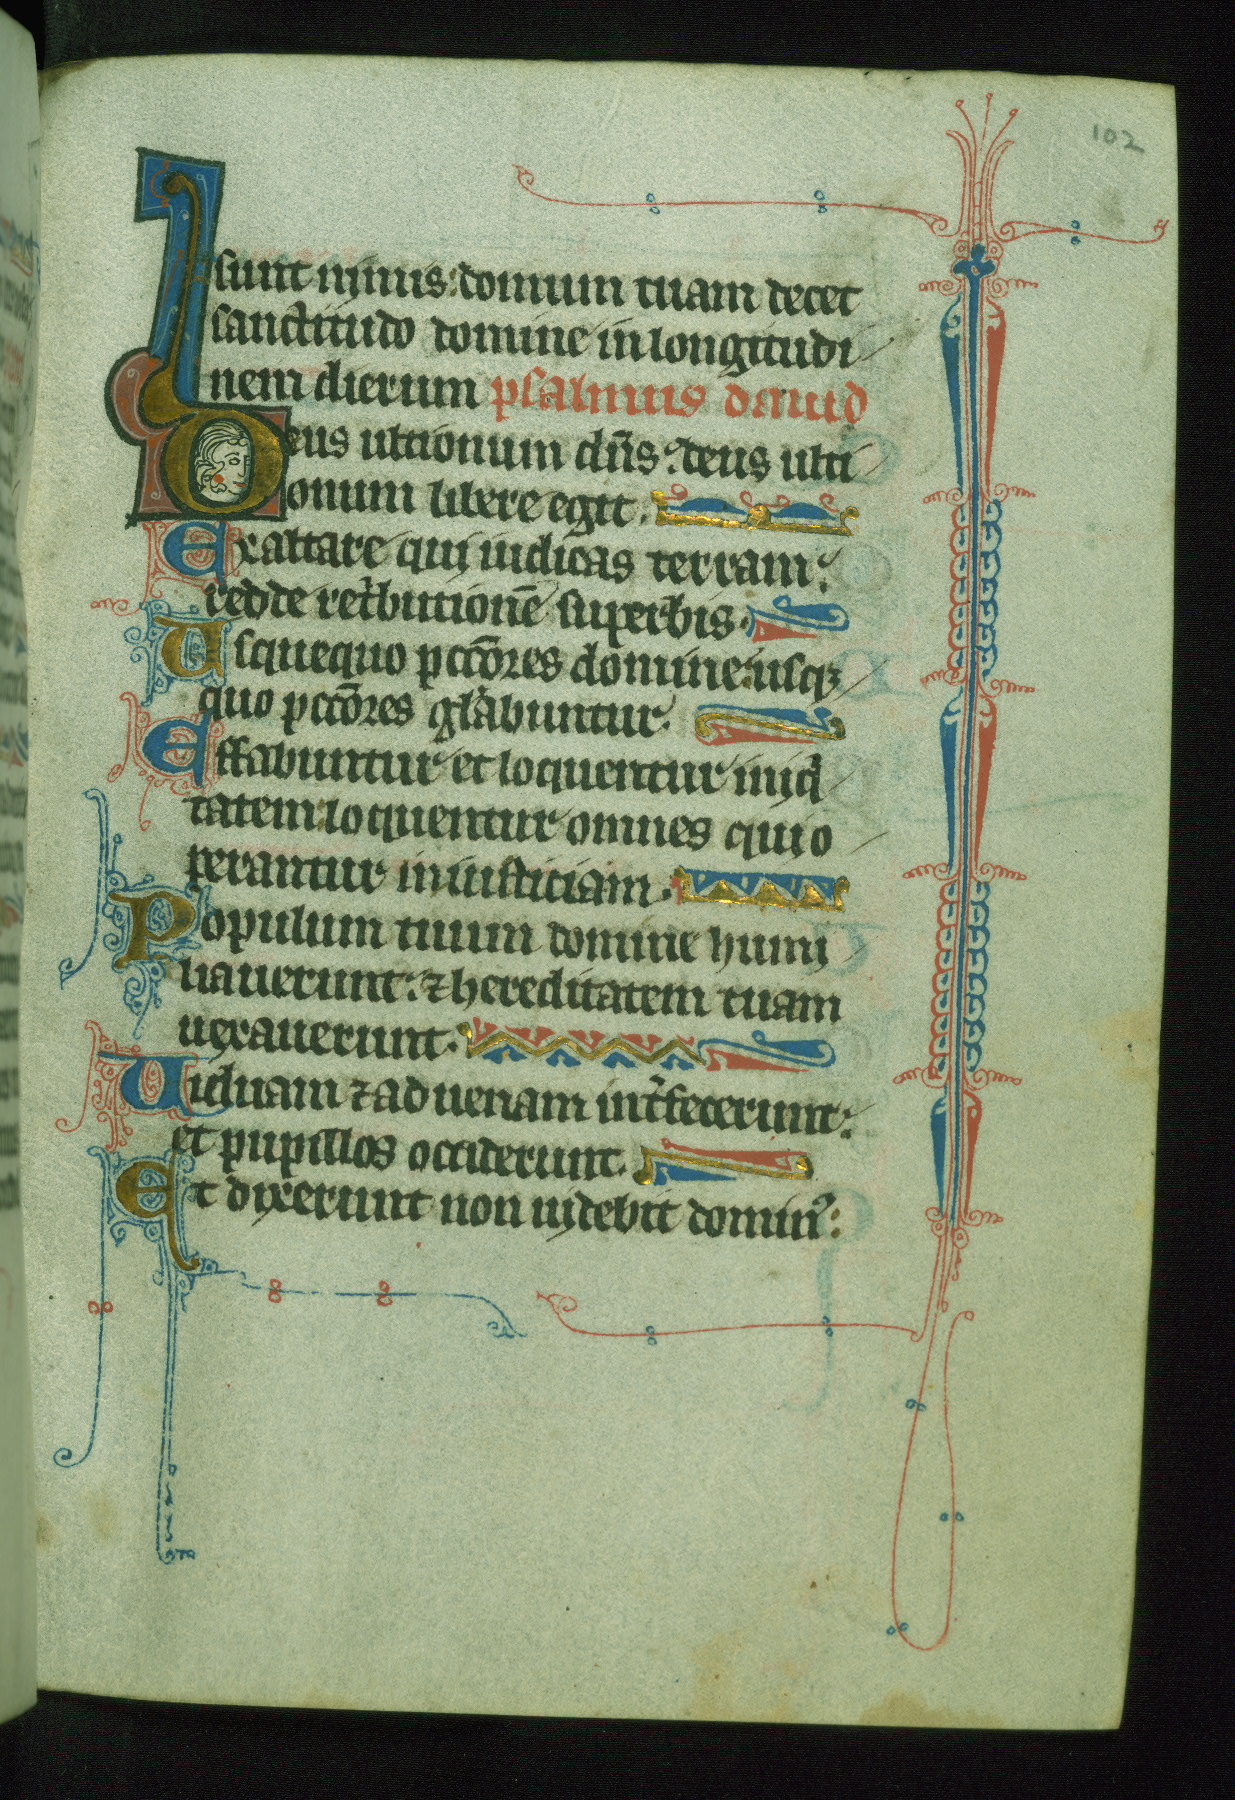 102
sunt nimis: domum tuam decet
sanctitudo domine in longitudi
nem dierum psalmus dauid
Deus ultionum dn̄s: deus ulti
onum libere egit.
Exaltare qui iudicas terram:
redde ret͛butionē superbis.
Usquequo pccōres domine: usqꝫ
quo pccōres glāb̄untur.
Effabuntur et loquentur iniqͥ
tatem: loquentur omnes qui o
perantur iniusticiam.
Populum tuum domine humi
liauerunt: ⁊ hereditatem tuam
uexauerunt.
Uiduam ⁊ aduenam int͛fecerunt:
et pupillos occiderunt.
Et dixerunt non uidebit domin᷒: